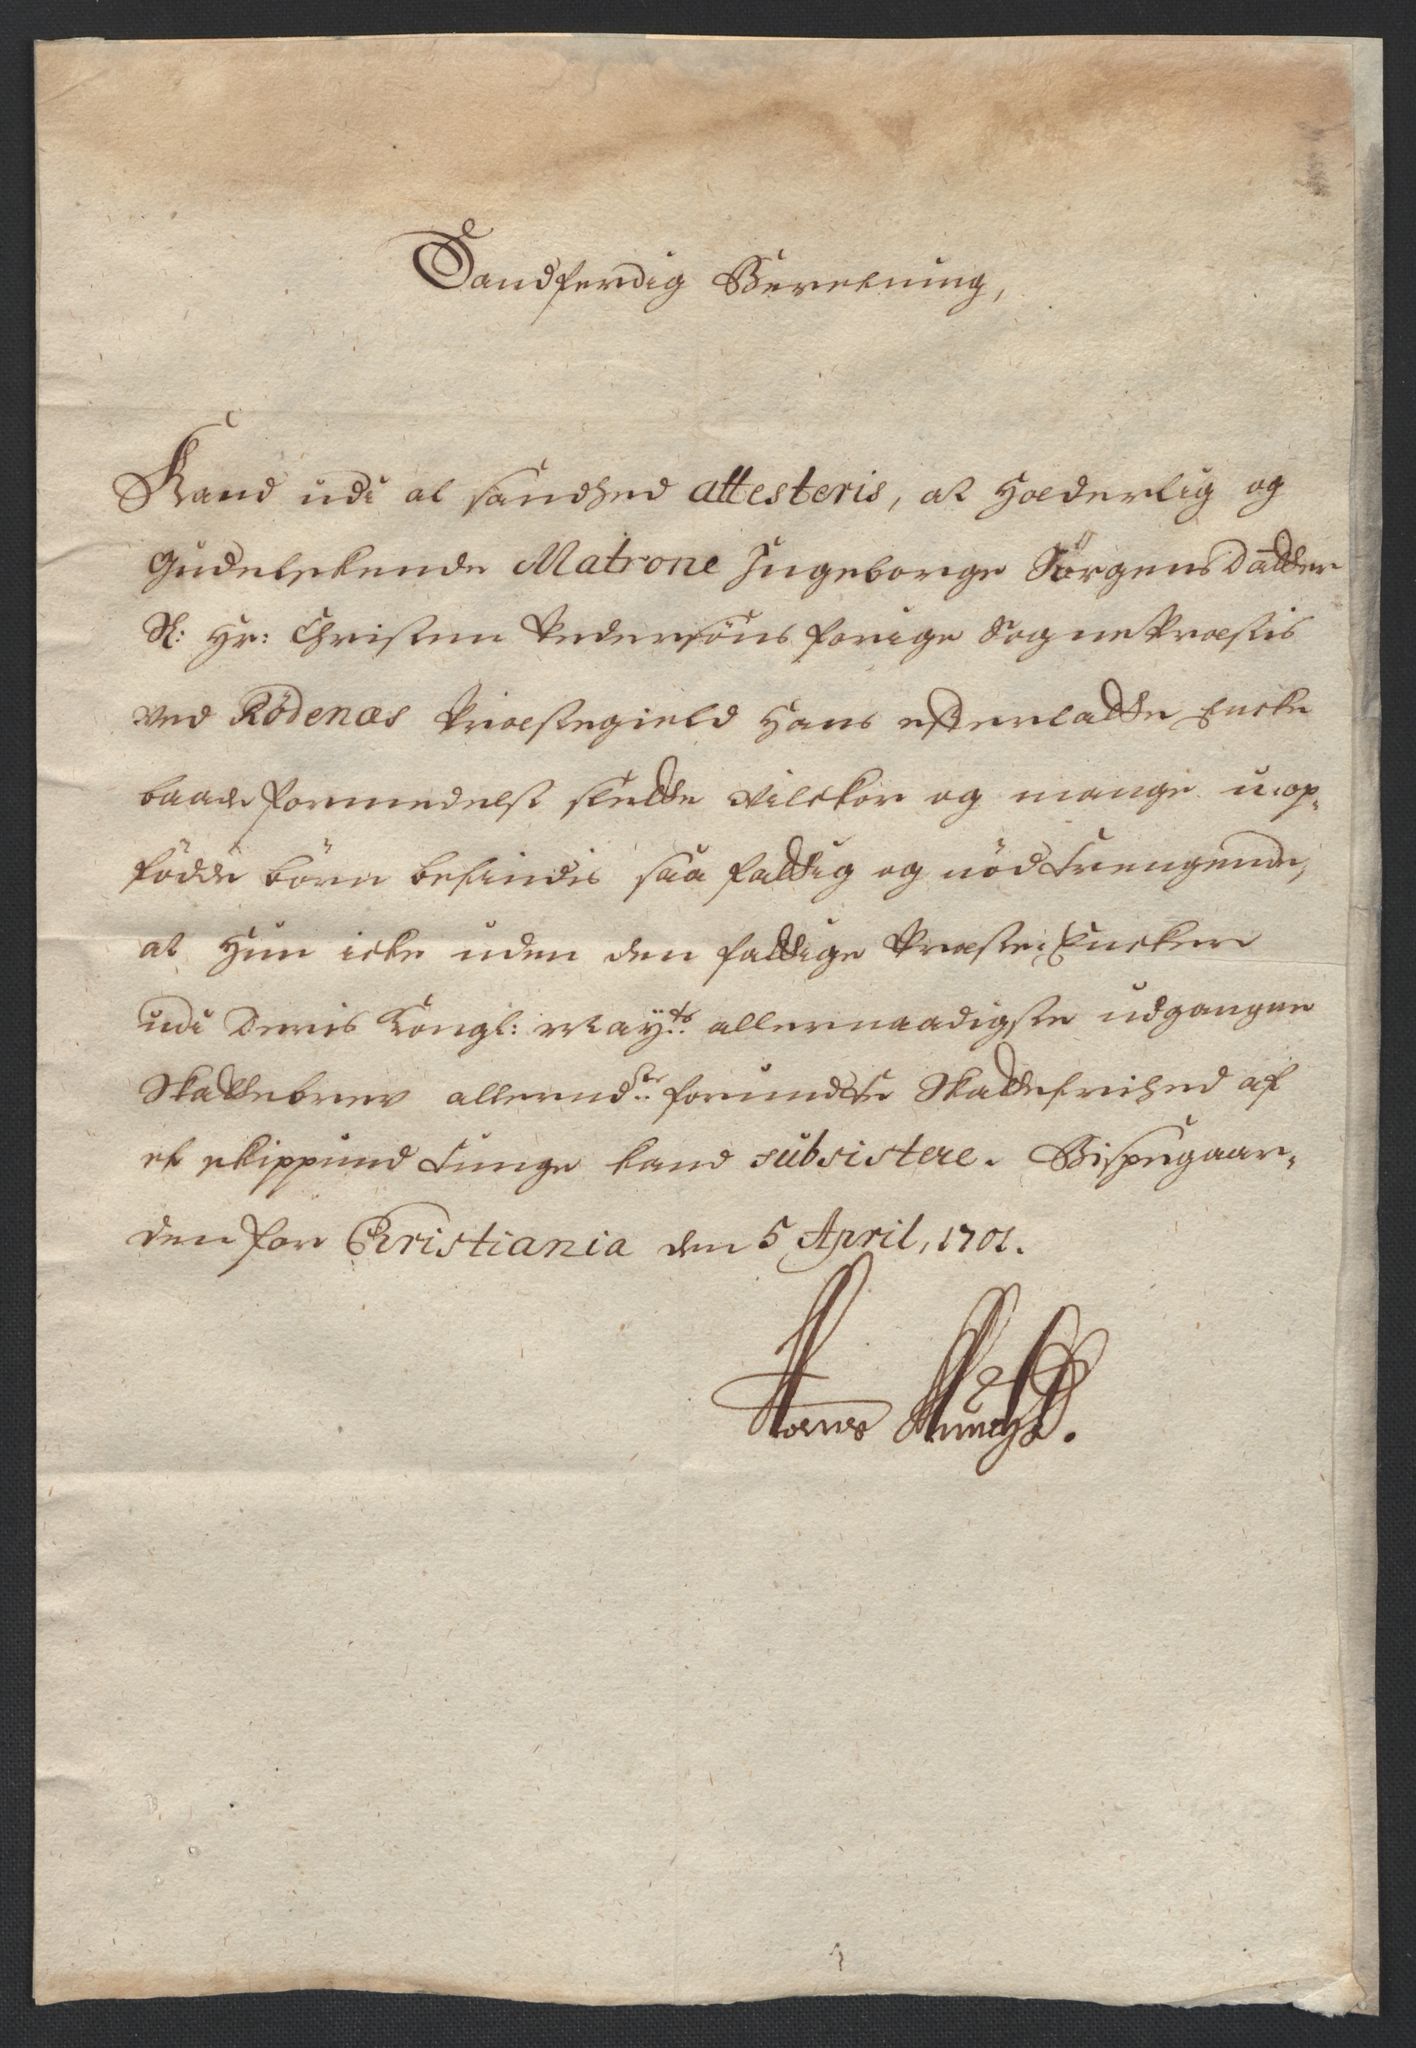 Sandferdig Beretning,
Kand udi al sandhed attesteris, at Hæderlig og
gudelskende Matrone Ingeborge Jörgens Datter
Sl: Hr: Christen Pedersöns forige Sogne Præstis
ved Rödenæs Præstegield Hans efterlatte Encke
baade formedelst slette vilckor og mange u-op-
födde börn befindis saa fattig og nödtrengende,
at Hun icke uden den fattige Præste-Encker
udi Deris Kongl: Mayts: allernaadigste udgangne
Skattebrev allerndste: forundte Skattefrihed af
et skippund tunge kand subsistere. Bispegaar-
den for Christiania den 5 April, 1701.
Hans Munch.